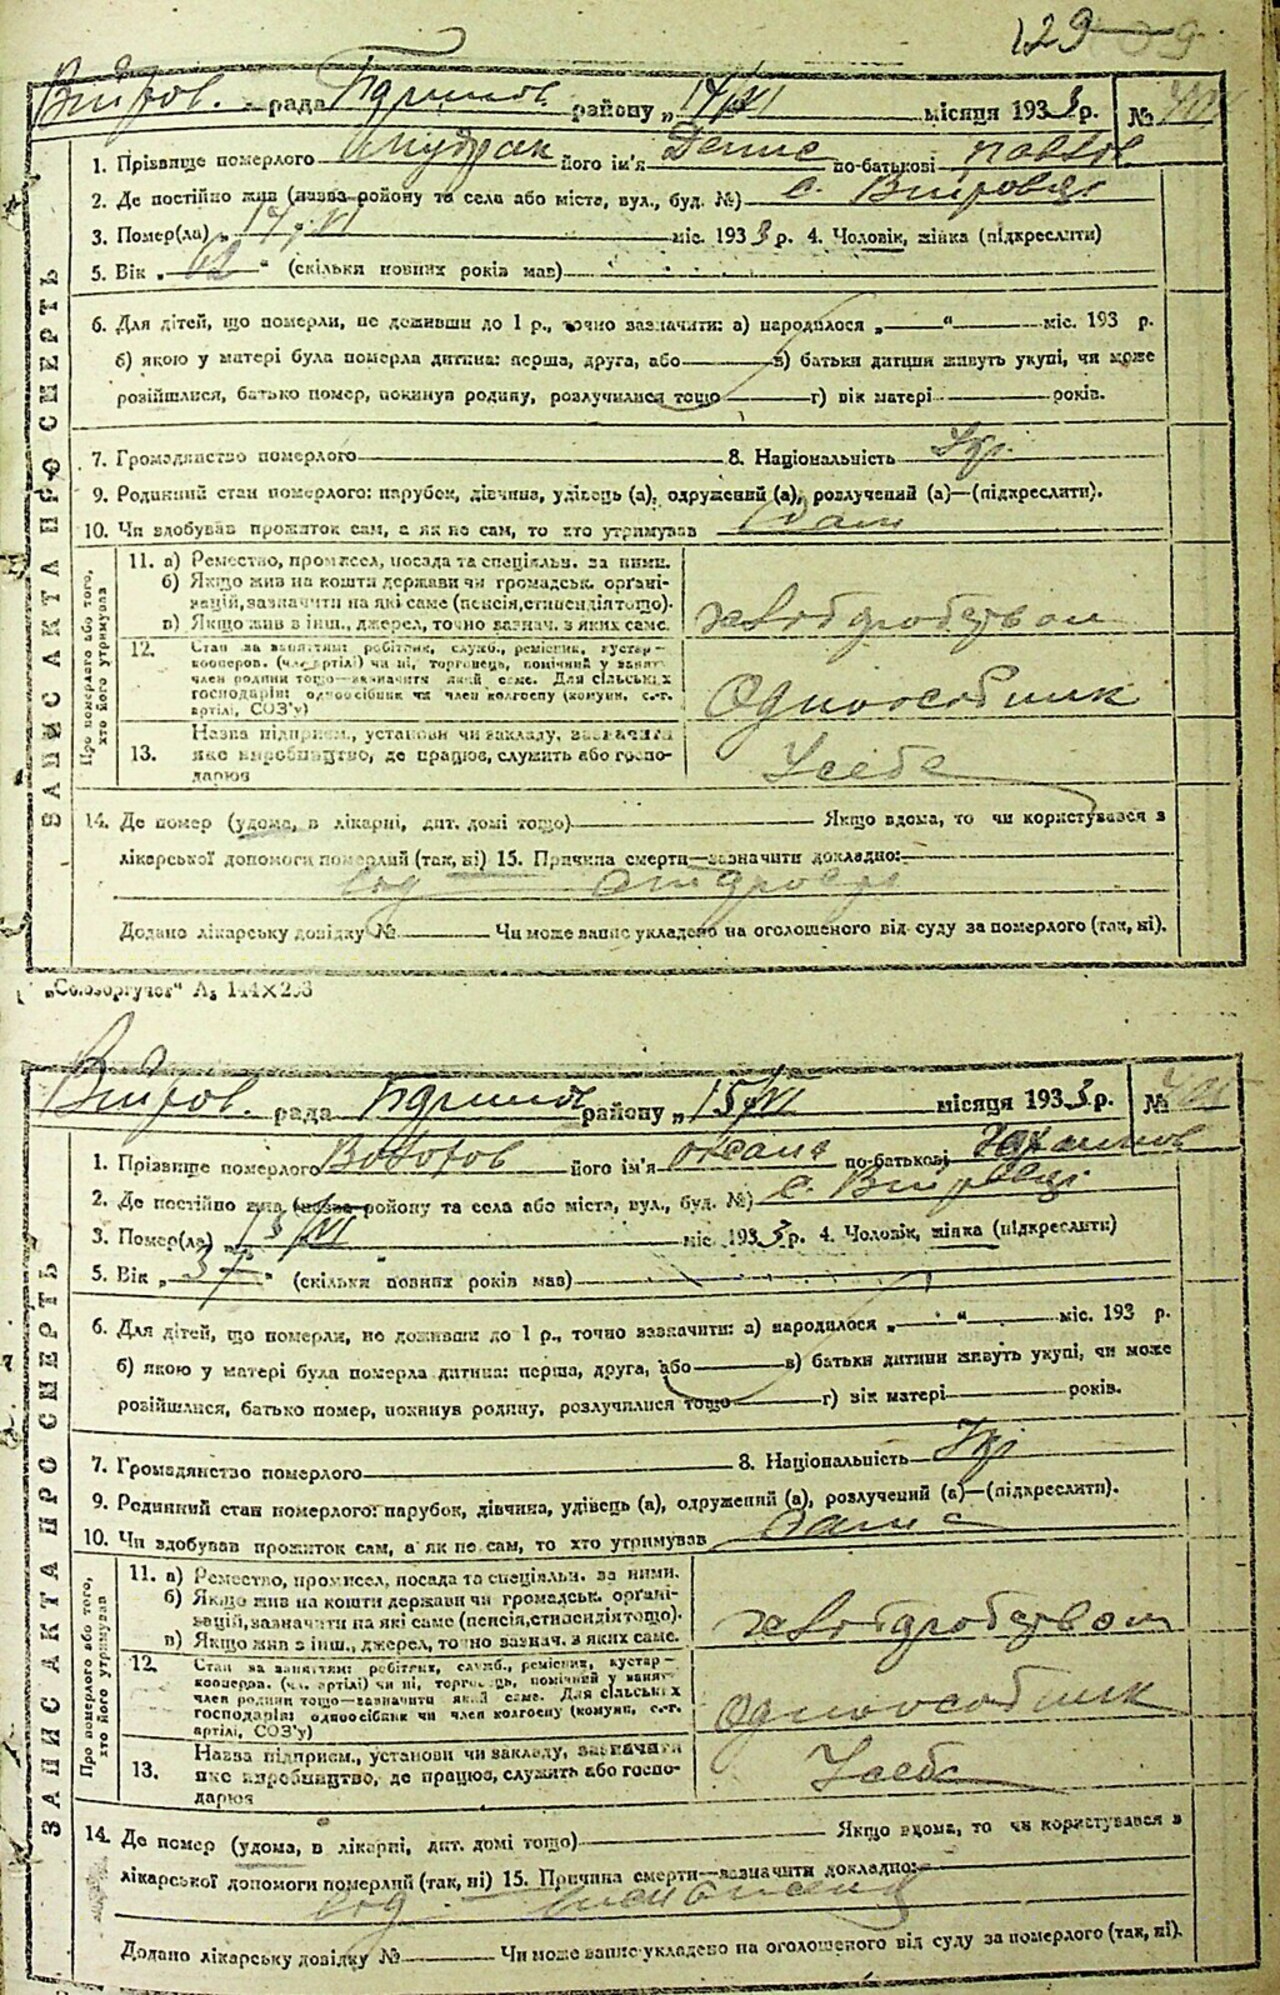 129
рада району „14/VI місяця 1933 р. №
1. Прізвище померлого його ім'я Денис по-батькові Павлов
2. Де постійно жив (назва району та села або міста, вул., буд. №) с.
3. Помер(ла) „14/VI міс. 1933 р. 4. Чоловік, жінка (підкреслити)
5. Вік „62“ (скільки повних років мав)
6. Для дітей, що померли, не доживши до 1 р., точно зазначити: а) народилося „ “ міс. 193 р.
б) якою у матері була померла дитина: перша, друга, або в) батьки дитини живуть укупі, чи може
розійшлися, батько помер, покинув родину, розлучилися тощо г) вік матері років.
7. Громадянство померлого 8. Національність Укр.
9. Родинний стан померлого: парубок, дівчина, удівець (а), одружений (а), розлучений (а)—(підкреслити).
10. Чи здобував прожиток сам, а як не сам, то хто утримував Сам
ЗАПИС АКТА ПРО СМЕРТЬ
Про померлого або того, хто його утримував
11. а) Ремество, промисел, посада та спеціяльн. за ними.
б) Якщо жив на кошти держави чи громадськ. органі-
зацій, зазначити на які саме (пенсія, стипендія тощо).
в) Якщо жив з інш., джерел, точно зазнач. з яких саме.
хліборобством
12. Стан за заняттям: робітник, служб., ремісник, кустар—
кооперов. (член артілі) чи ні, торговець, помічний у занят.
член родини тощо—зазначити який саме. Для сільських
господарів: одноосібник чи член колгоспу (комуни, с.-г.
артілі, СОЗ'у)
Одноособник
Назва підприєм., установи чи закладу, зазначити
13. яке виробництво, де працює, служить або госпо-
дарює
Усебе
14. Де помер (удома, в лікарні, дит. домі тощо) Якщо вдома, то чи користувався з
лікарської допомоги померлий (так, ні) 15. Причина смерти—зазначити докладно:
від
Додано лікарську довідку № Чи може запис укладено на оголошеного від суду за померлого (так, ні).
„Союзоргучет“ А₅ 144×203
рада району „15/VI місяця 1933 р. №
1. Прізвище померлого його ім'я Оксана по-батькові
2. Де постійно жив (назва району та села або міста, вул., буд. №) с.
3. Помер(ла) „ міс. 1933 р. 4. Чоловік, жінка (підкреслити)
5. Вік „37“ (скільки повних років мав)
6. Для дітей, що померли, не доживши до 1 р., точно зазначити: а) народилося „ “ міс. 193 р.
б) якою у матері була померла дитина: перша, друга, або в) батьки дитини живуть укупі, чи може
розійшлися, батько помер, покинув родину, розлучилися тощо г) вік матері років.
7. Громадянство померлого 8. Національність Укр
9. Родинний стан померлого: парубок, дівчина, удівець (а), одружений (а), розлучений (а)—(підкреслити).
10. Чи здобував прожиток сам, а як не сам, то хто утримував Сама
ЗАПИС АКТА ПРО СМЕРТЬ
Про померлого або того, хто його утримував
11. а) Ремество, промисел, посада та спеціяльн. за ними.
б) Якщо жив на кошти держави чи громадськ. органі-
зацій, зазначити на які саме (пенсія, стипендія тощо).
в) Якщо жив з інш., джерел, точно зазнач. з яких саме.
хліборобством
12. Стан за заняттям: робітник, служб., ремісник, кустар—
кооперов. (чл. артілі) чи ні, торговець, помічний у занят.
член родини тощо—зазначити який саме. Для сільських
господарів: одноосібник чи член колгоспу (комуни, с.-г.
артілі, СОЗ'у)
Одноособник
Назва підприєм., установи чи закладу, зазначити
13. яке виробництво, де працює, служить або госпо-
дарює
Усебе
14. Де помер (удома, в лікарні, дит. домі тощо) Якщо вдома, то чи користувався з
лікарської допомоги померлий (так, ні) 15. Причина смерти—зазначити докладно:
від
Додано лікарську довідку № Чи може запис укладено на оголошеного від суду за померлого (так, ні).